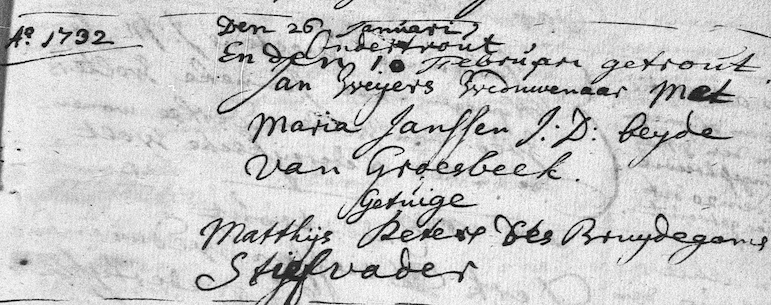 Aº. 1732
Den 26 Januari
Ondertrout
En den 10 Februari getrout
Jan Weijers Weduwenaar Met
Maria Janssen J: D: beyde
van Groesbeek.
Getuige
Matthijs Peters des Bruydegoms
Stiefvader